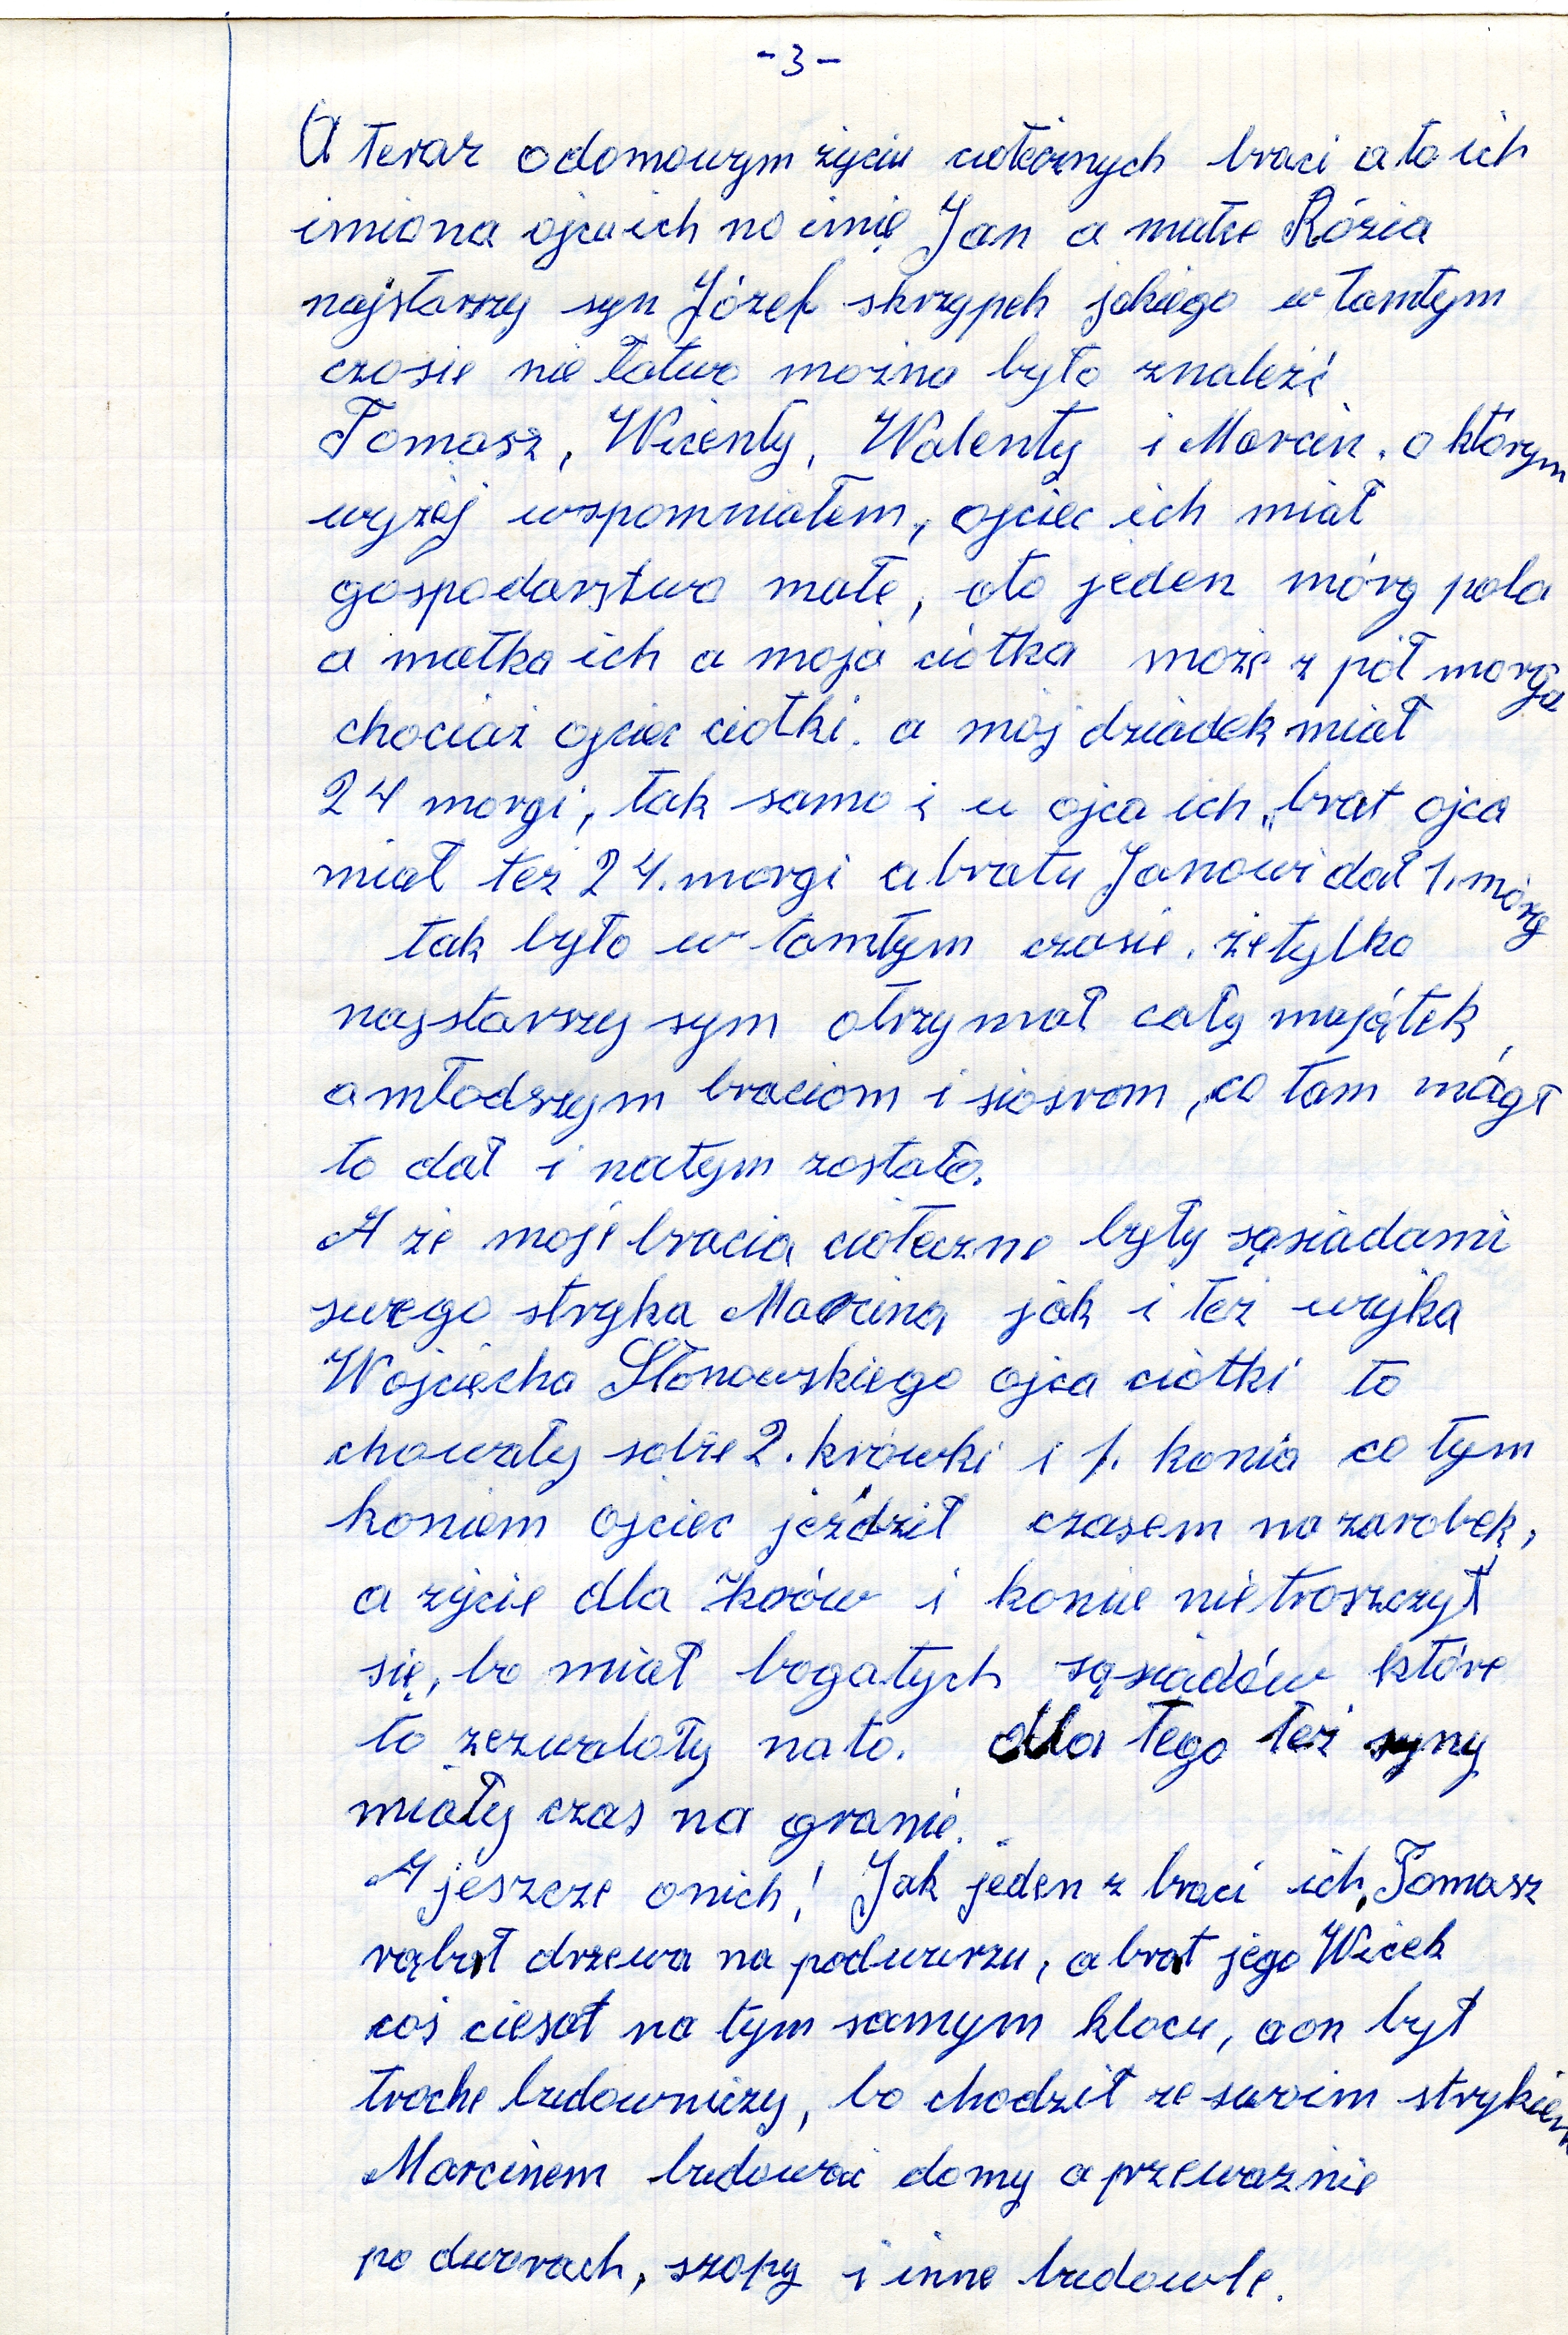 -3-
A teraz o domowym życiu ciotecznych braci a to ich
imiona ojcu ich no imię Jan a matce Rózia
najstarszy syn Józef skrzypek jakiego w tamtym
czasie nie łatwo można było znaleźć
Tomasz, Wicenty, Walenty i Marcin. o którym
wyżej wspomniałem, ojciec ich miał
gospodarstwo małe, oto jeden mórg pola
a matka ich a moja ciotka może z pół morga
chociaż ojciec ciotki. a mój dziadek miał
24 morgi, tak samo i u ojca ich, brat ojca
miał też 24. morgi a bratu Janowi dał 1. mórg
tak było w tamtym czasie. że tylko
najstarszy sym otrzymał cały majątek
a młodszym braciom i siosrom, co tam mógł
to dał i natym zostało.
A że moje bracia cioteczne były sąsiadami
swego stryka Marcina jak i też wujka
Wojciecha Słonowskiego ojca ciotki to
chowały sobie 2. krówki i 1. konia co tym
koniem ojciec jeździł czasem na zarobek,
a życie dla krów i konie nie troszczył
się, bo miał bogatych sąsiadów które
to zezwalały na to. dla tego też syny
miały czas na granie.
A jeszcze onich! Jak jeden z braci ich, Tomasz
rąbał drzewa na podwurzu, a brat jego Wicek
coś ciesał na tym samym klocu, a on był
troche budowniczy, bo chodził ze swoim strykiem
Marcinem budować domy a przeważnie
po dworach, szopy i inne budowle.